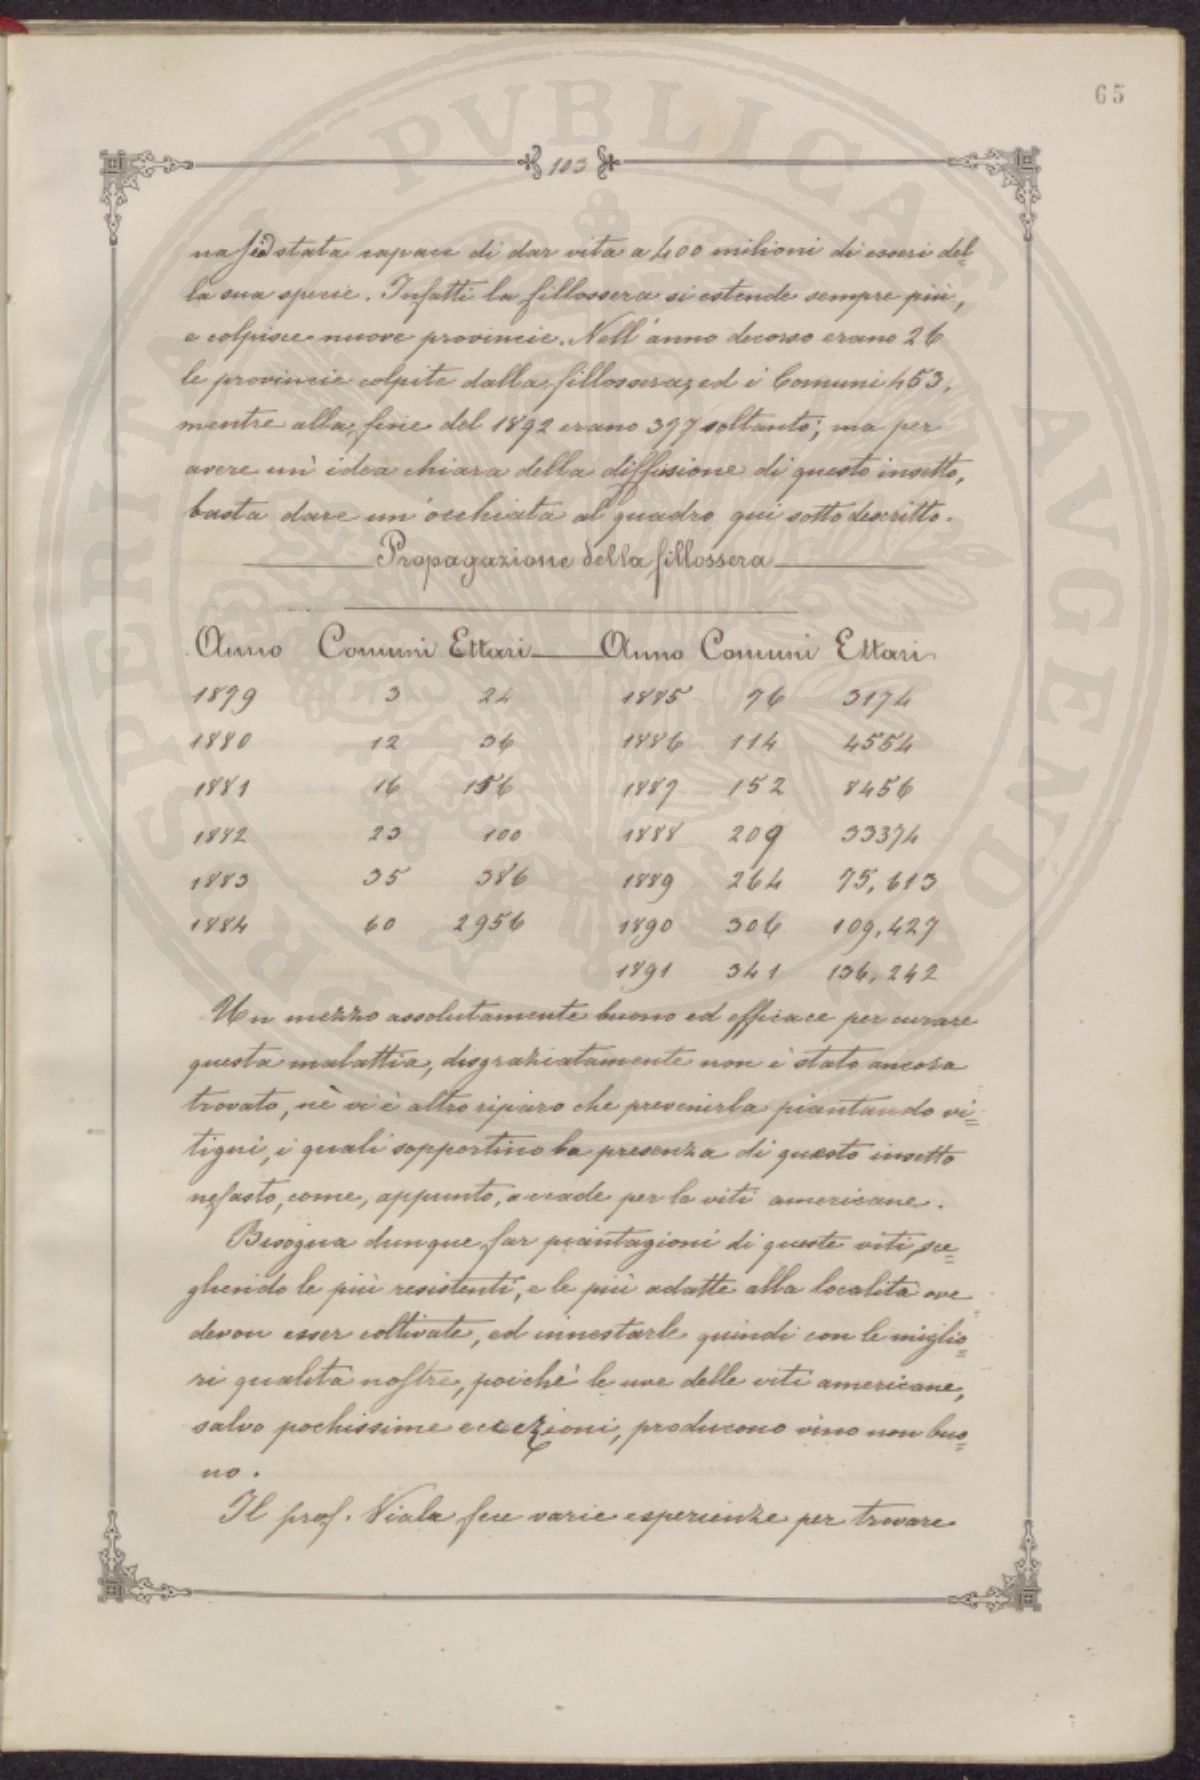 65
103
na sia stata capace di dar vita a 400 milioni di esseri del=
la sua specie. Infatti la fillossera si estende sempre più,
e colpisce nuove provincie. Nell'anno decorso erano 26
le provincie colpite dalla fillossera, ed i Comuni 453,
mentre alla fine del 1892 erano 397 soltanto; ma per
avere un'idea chiara della diffusione di questo insetto,
basta dare un'occhiata al quadro qui sotto descritto.
Propagazione della fillossera
Anno Comuni Ettari Anno Comuni Ettari
1879 3 24 1885 76 3174
1880 12 36 1886 114 4554
1881 16 156 1887 152 8456
1882 23 100 1888 209 33374
1883 35 386 1889 264 75,613
1884 60 2956 1890 306 109,427
1891 341 136,242
Un mezzo assolutamente buono ed efficace per curare
questa malattia, disgraziatamente non è stato ancora
trovato, nè vi è altro riparo che prevenirla piantando vi=
tigni, i quali sopportino la presenza di questo insetto
nefasto, come, appunto, accade per le viti americane.
Bisogna dunque far piantagioni di queste viti, sce=
gliendo le più resistenti, e le più adatte alla località ove
devon esser coltivate, ed innestarle quindi con le miglio=
ri qualità nostre, poichè le uve delle viti americane,
salvo pochissime eccezioni, producono vino non buo=
no.
Il prof. Viala fece varie esperienze per trovare
PROSPERITATI PVBLICAE AVGENDAE